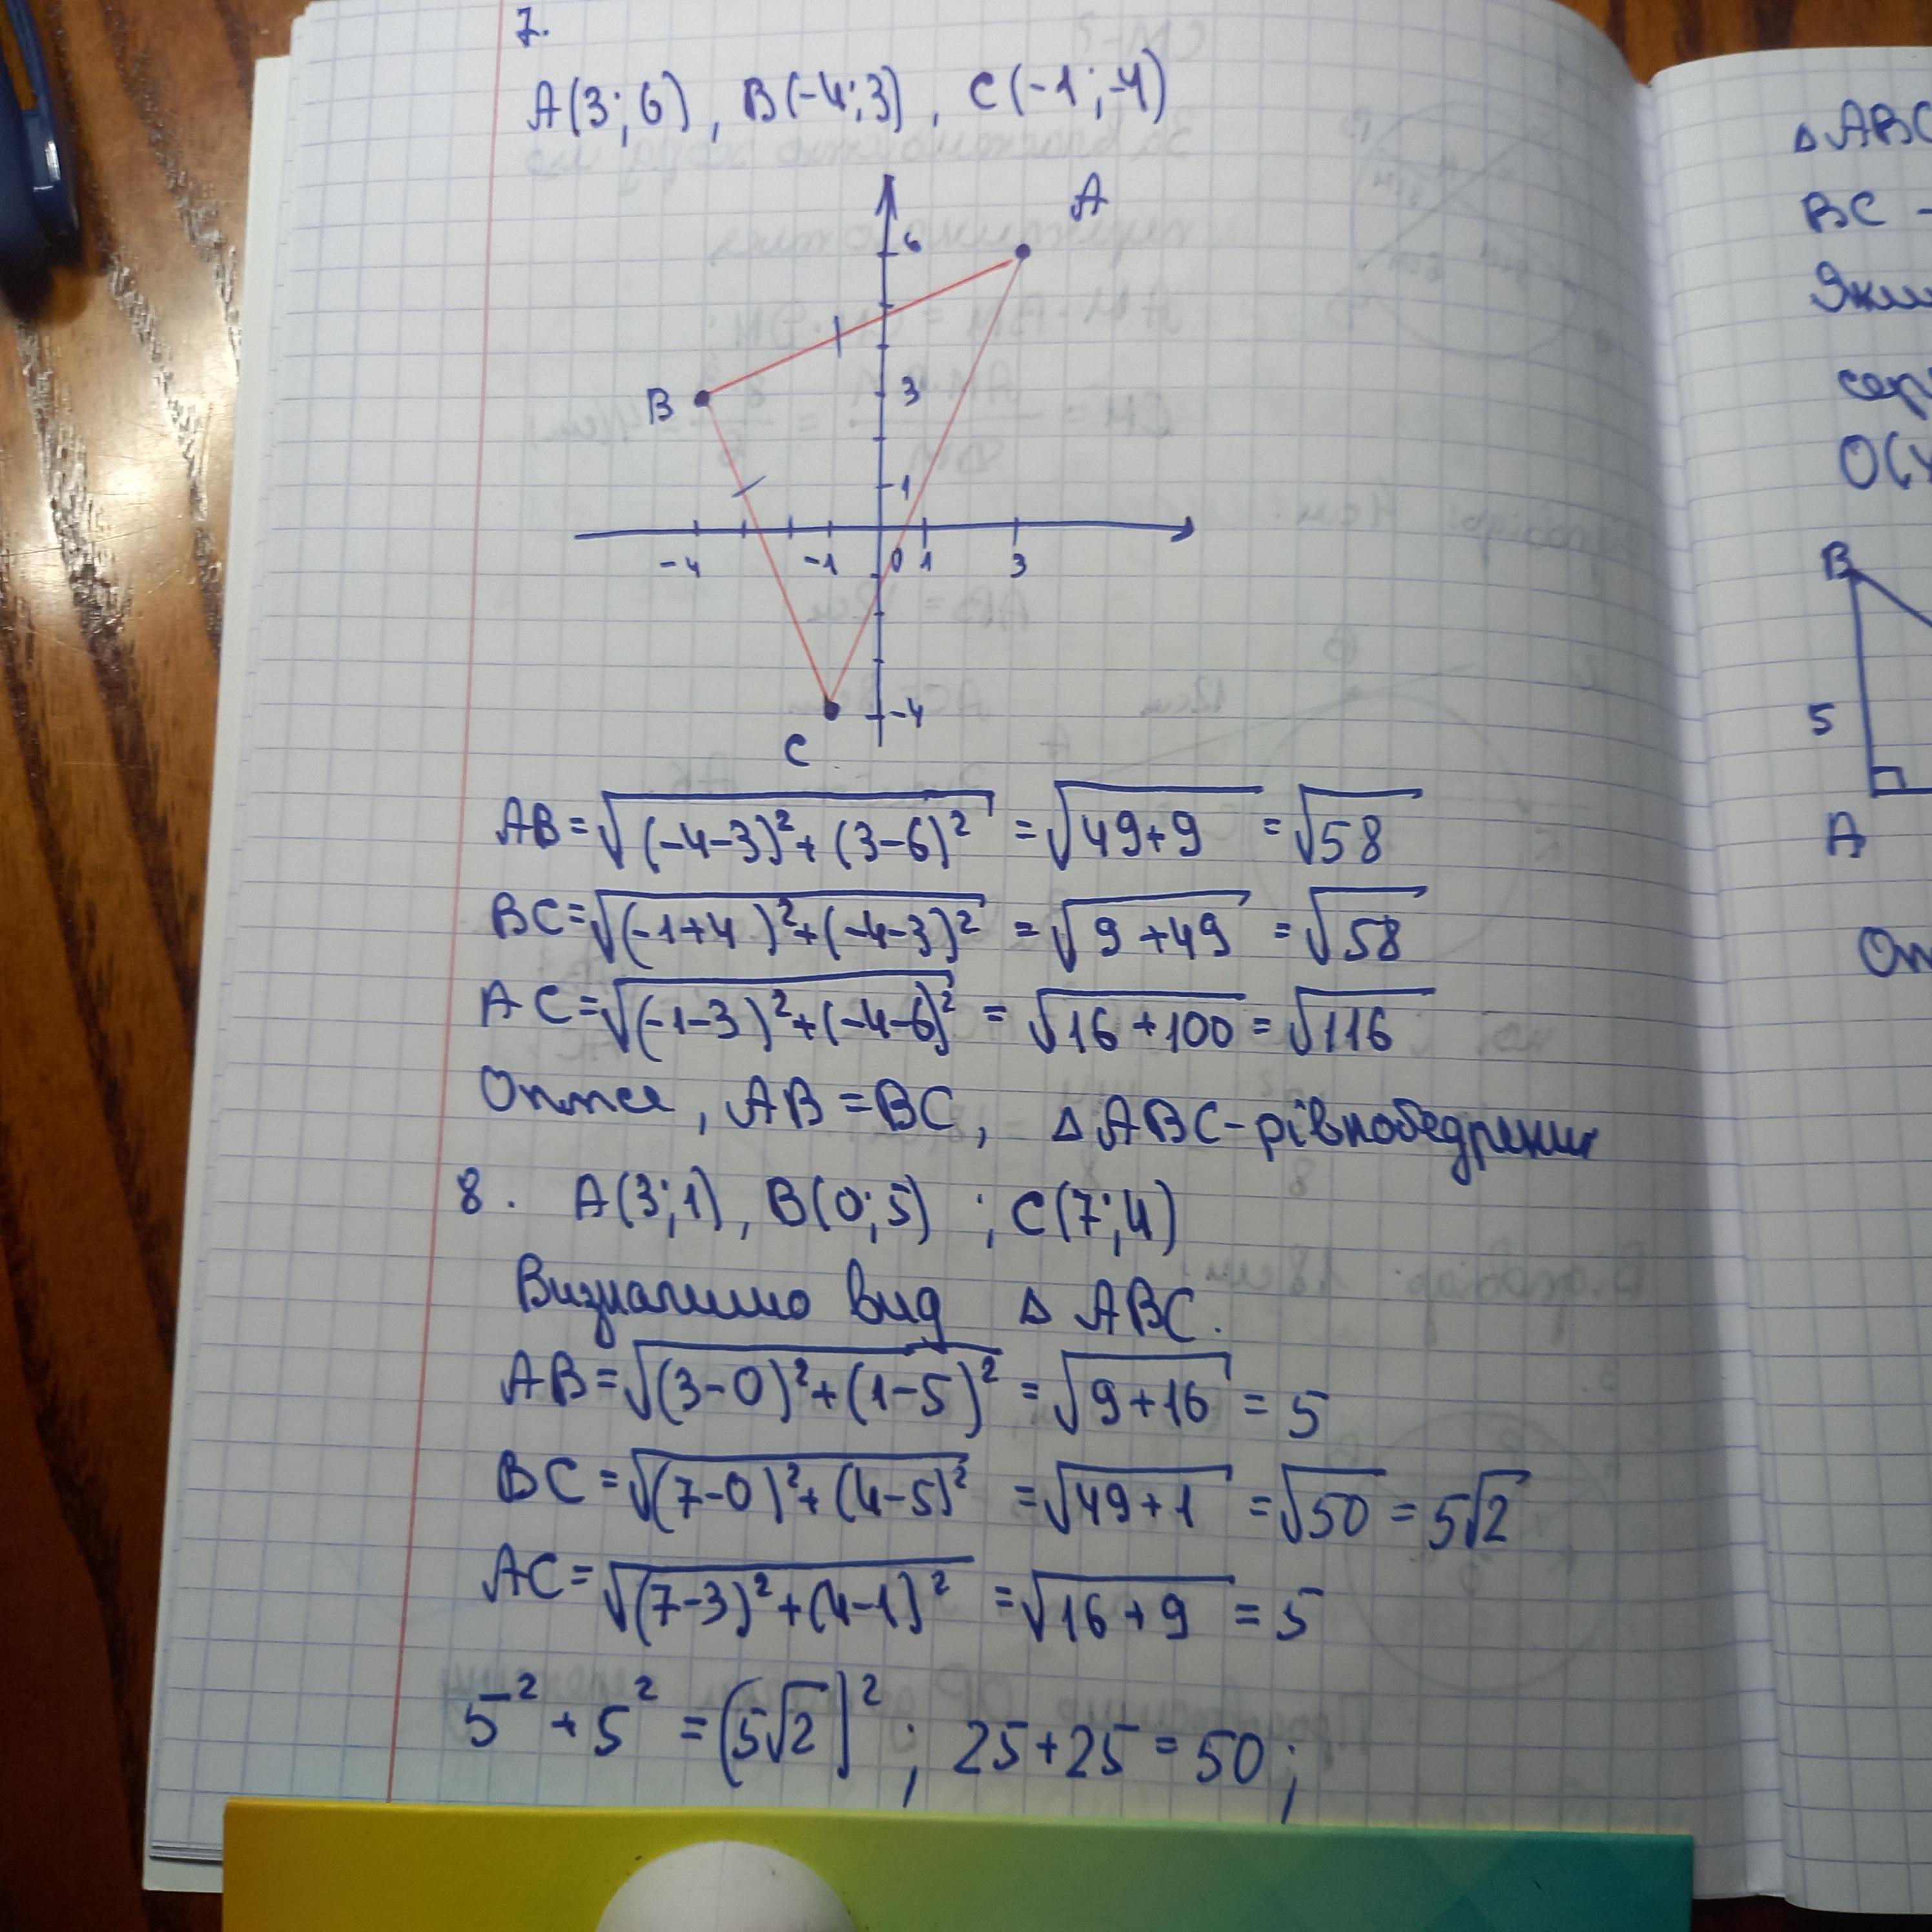 7.
A(3;6), B(-4;3), C(-1;-4)
A
6
B
3
1
-4 -1 0 1 3
-4
C
AB=√((-4-3)²+(3-6)²) = √(49+9) = √58
BC=√((-1+4)²+(-4-3)²) = √(9+49) = √58
AC=√((-1-3)²+(-4-6)²) = √(16+100) = √116
Отже, AB=BC, ΔABC-рівнобедрений
8. A(3;1), B(0;5) ; C(7;4)
Визначимо вид Δ ABC.
AB=√((3-0)²+(1-5)²) = √(9+16) = 5
BC=√((7-0)²+(4-5)²) = √(49+1) = √50 = 5√2
AC=√((7-3)²+(4-1)²) = √(16+9) = 5
5²+5² = (5√2)²; 25+25=50;
ΔABC
BC -
O(
B
5
A